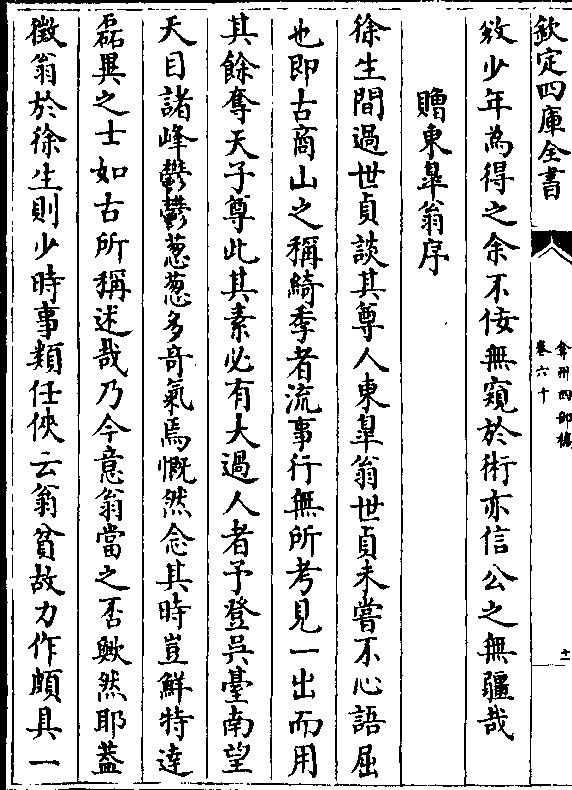 欽定四庫全書
弇州四部稿
卷六十
十二
效少年為得之余不佞無窺於術亦信公之無疆哉
贈東臯翁序
徐生間過世貞談其尊人東臯翁世貞未嘗不心語屈
也即古商山之稱綺季者流事行無所考見一出而用
其餘奪天子尊此其素必有大過人者予登吳臺南望
天目諸峰鬱鬱葱葱多奇氣焉慨然念其時豈鮮特達
磊異之士如古所稱述哉乃今意翁當之否歟然耶蓋
徵翁於徐生則少時事類任俠云翁貧故力作頗具一